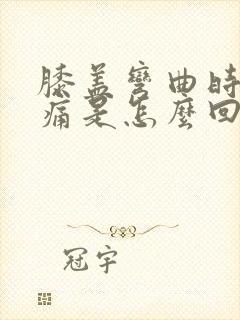 膝盖彎曲時
痛是怎麼回
冠宇